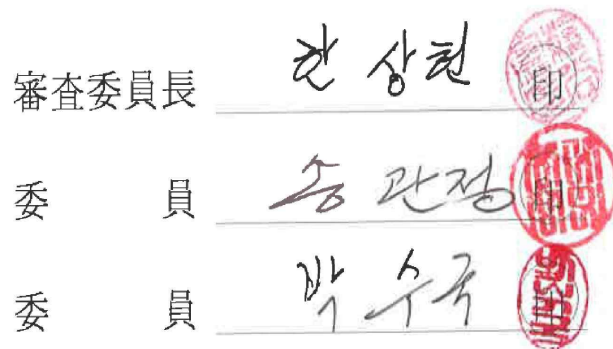 審査委員長 한상현 印
委 員 송관정 印
委 員 박수국 印